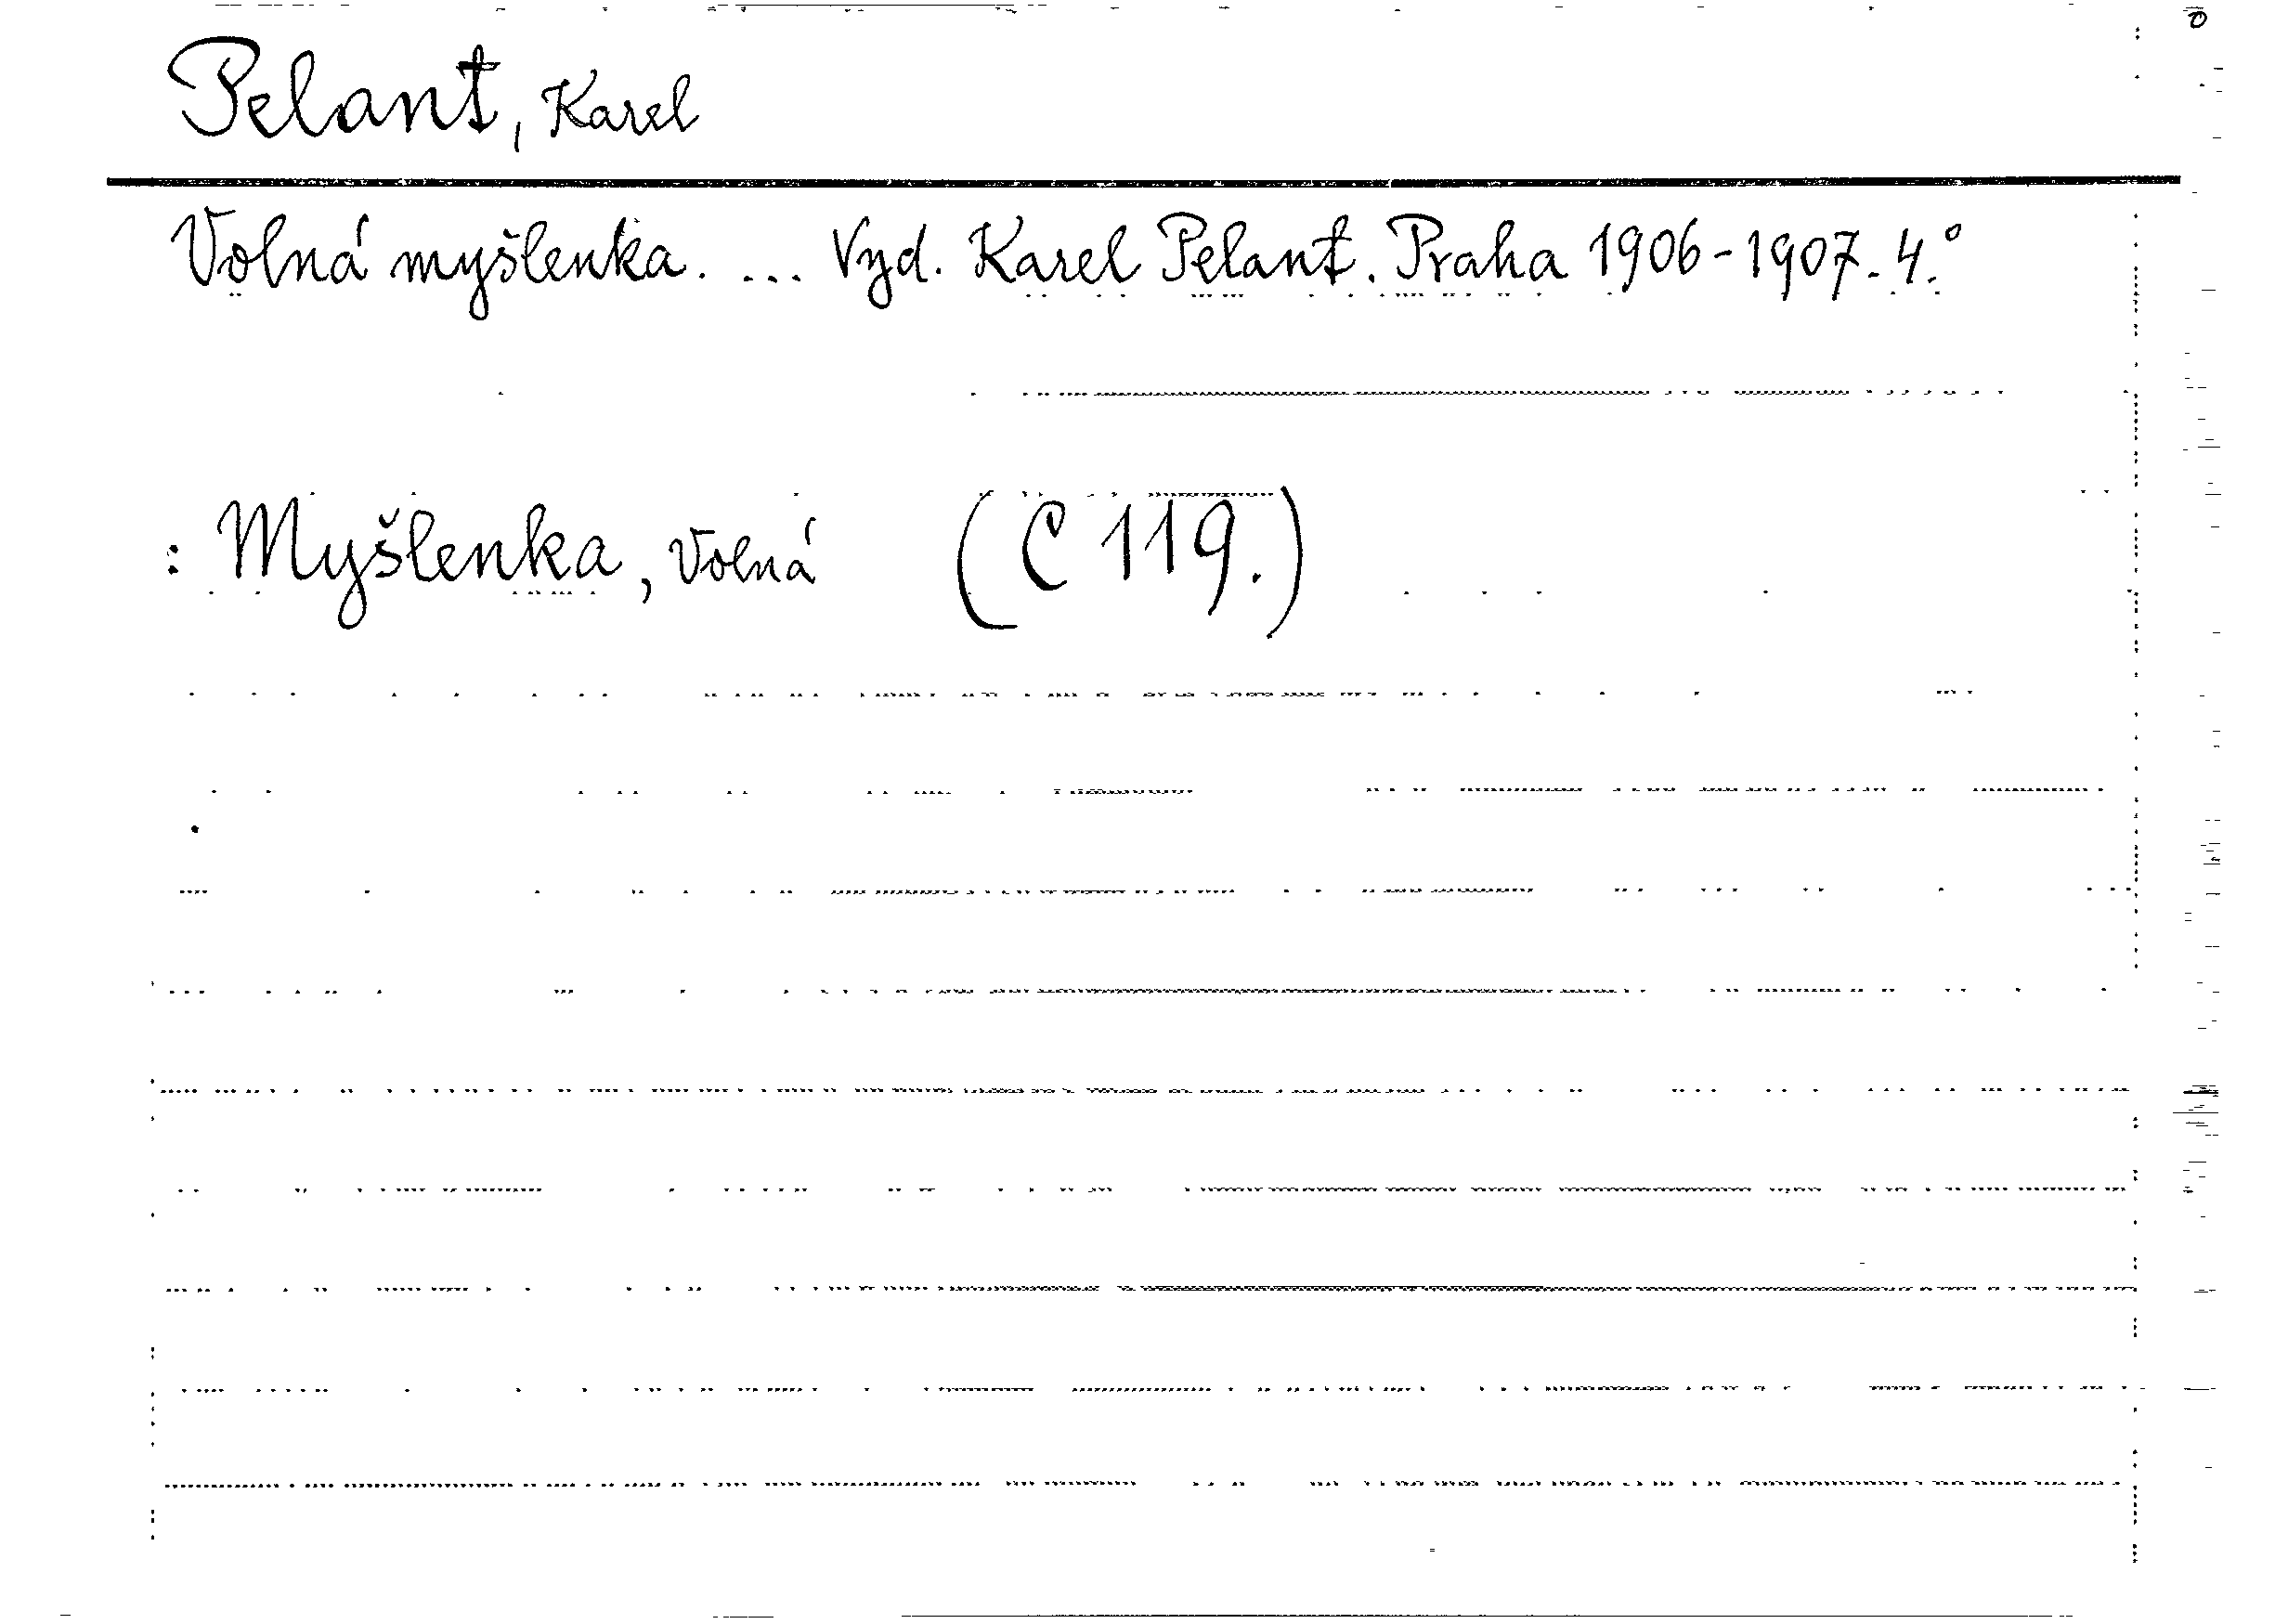 Pelant, Karel
Volná myšlenka. ... Vyd. Karel Pelant. Praha 1906-1907. 4.°
: Myšlenka, Volná (C 119.)